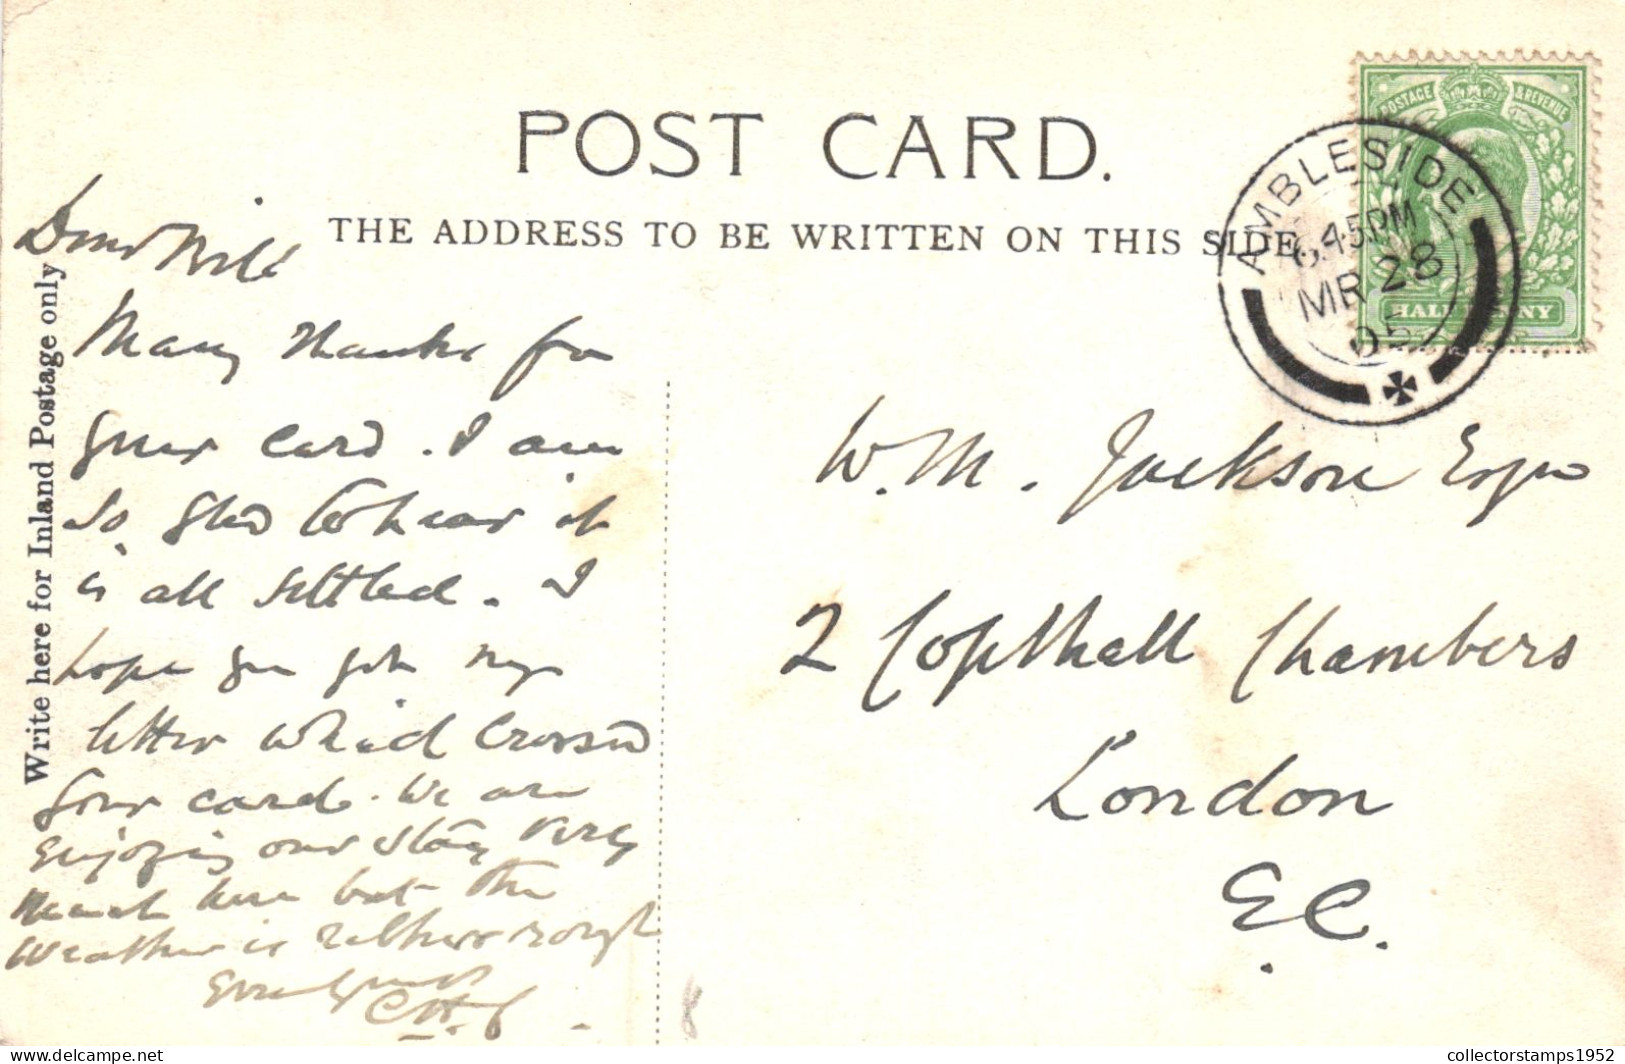 POST CARD.
THE ADDRESS TO BE WRITTEN ON THIS SIDE
Write here for Inland Postage only
POSTAGE & REVENUE
HALFPENNY
AMBLESIDE
6.45PM
MR 28
05
Dear Will
Many thanks for
your card. I am
so glad to hear it
is all settled. I
hope you got my
letter which crossed
your card. We are
enjoying our stay very
much here but the
weather is rather rough
W. M. Jackson Esqre
2 Copthall Chambers
London
E.C.
8
collectorstamps1952